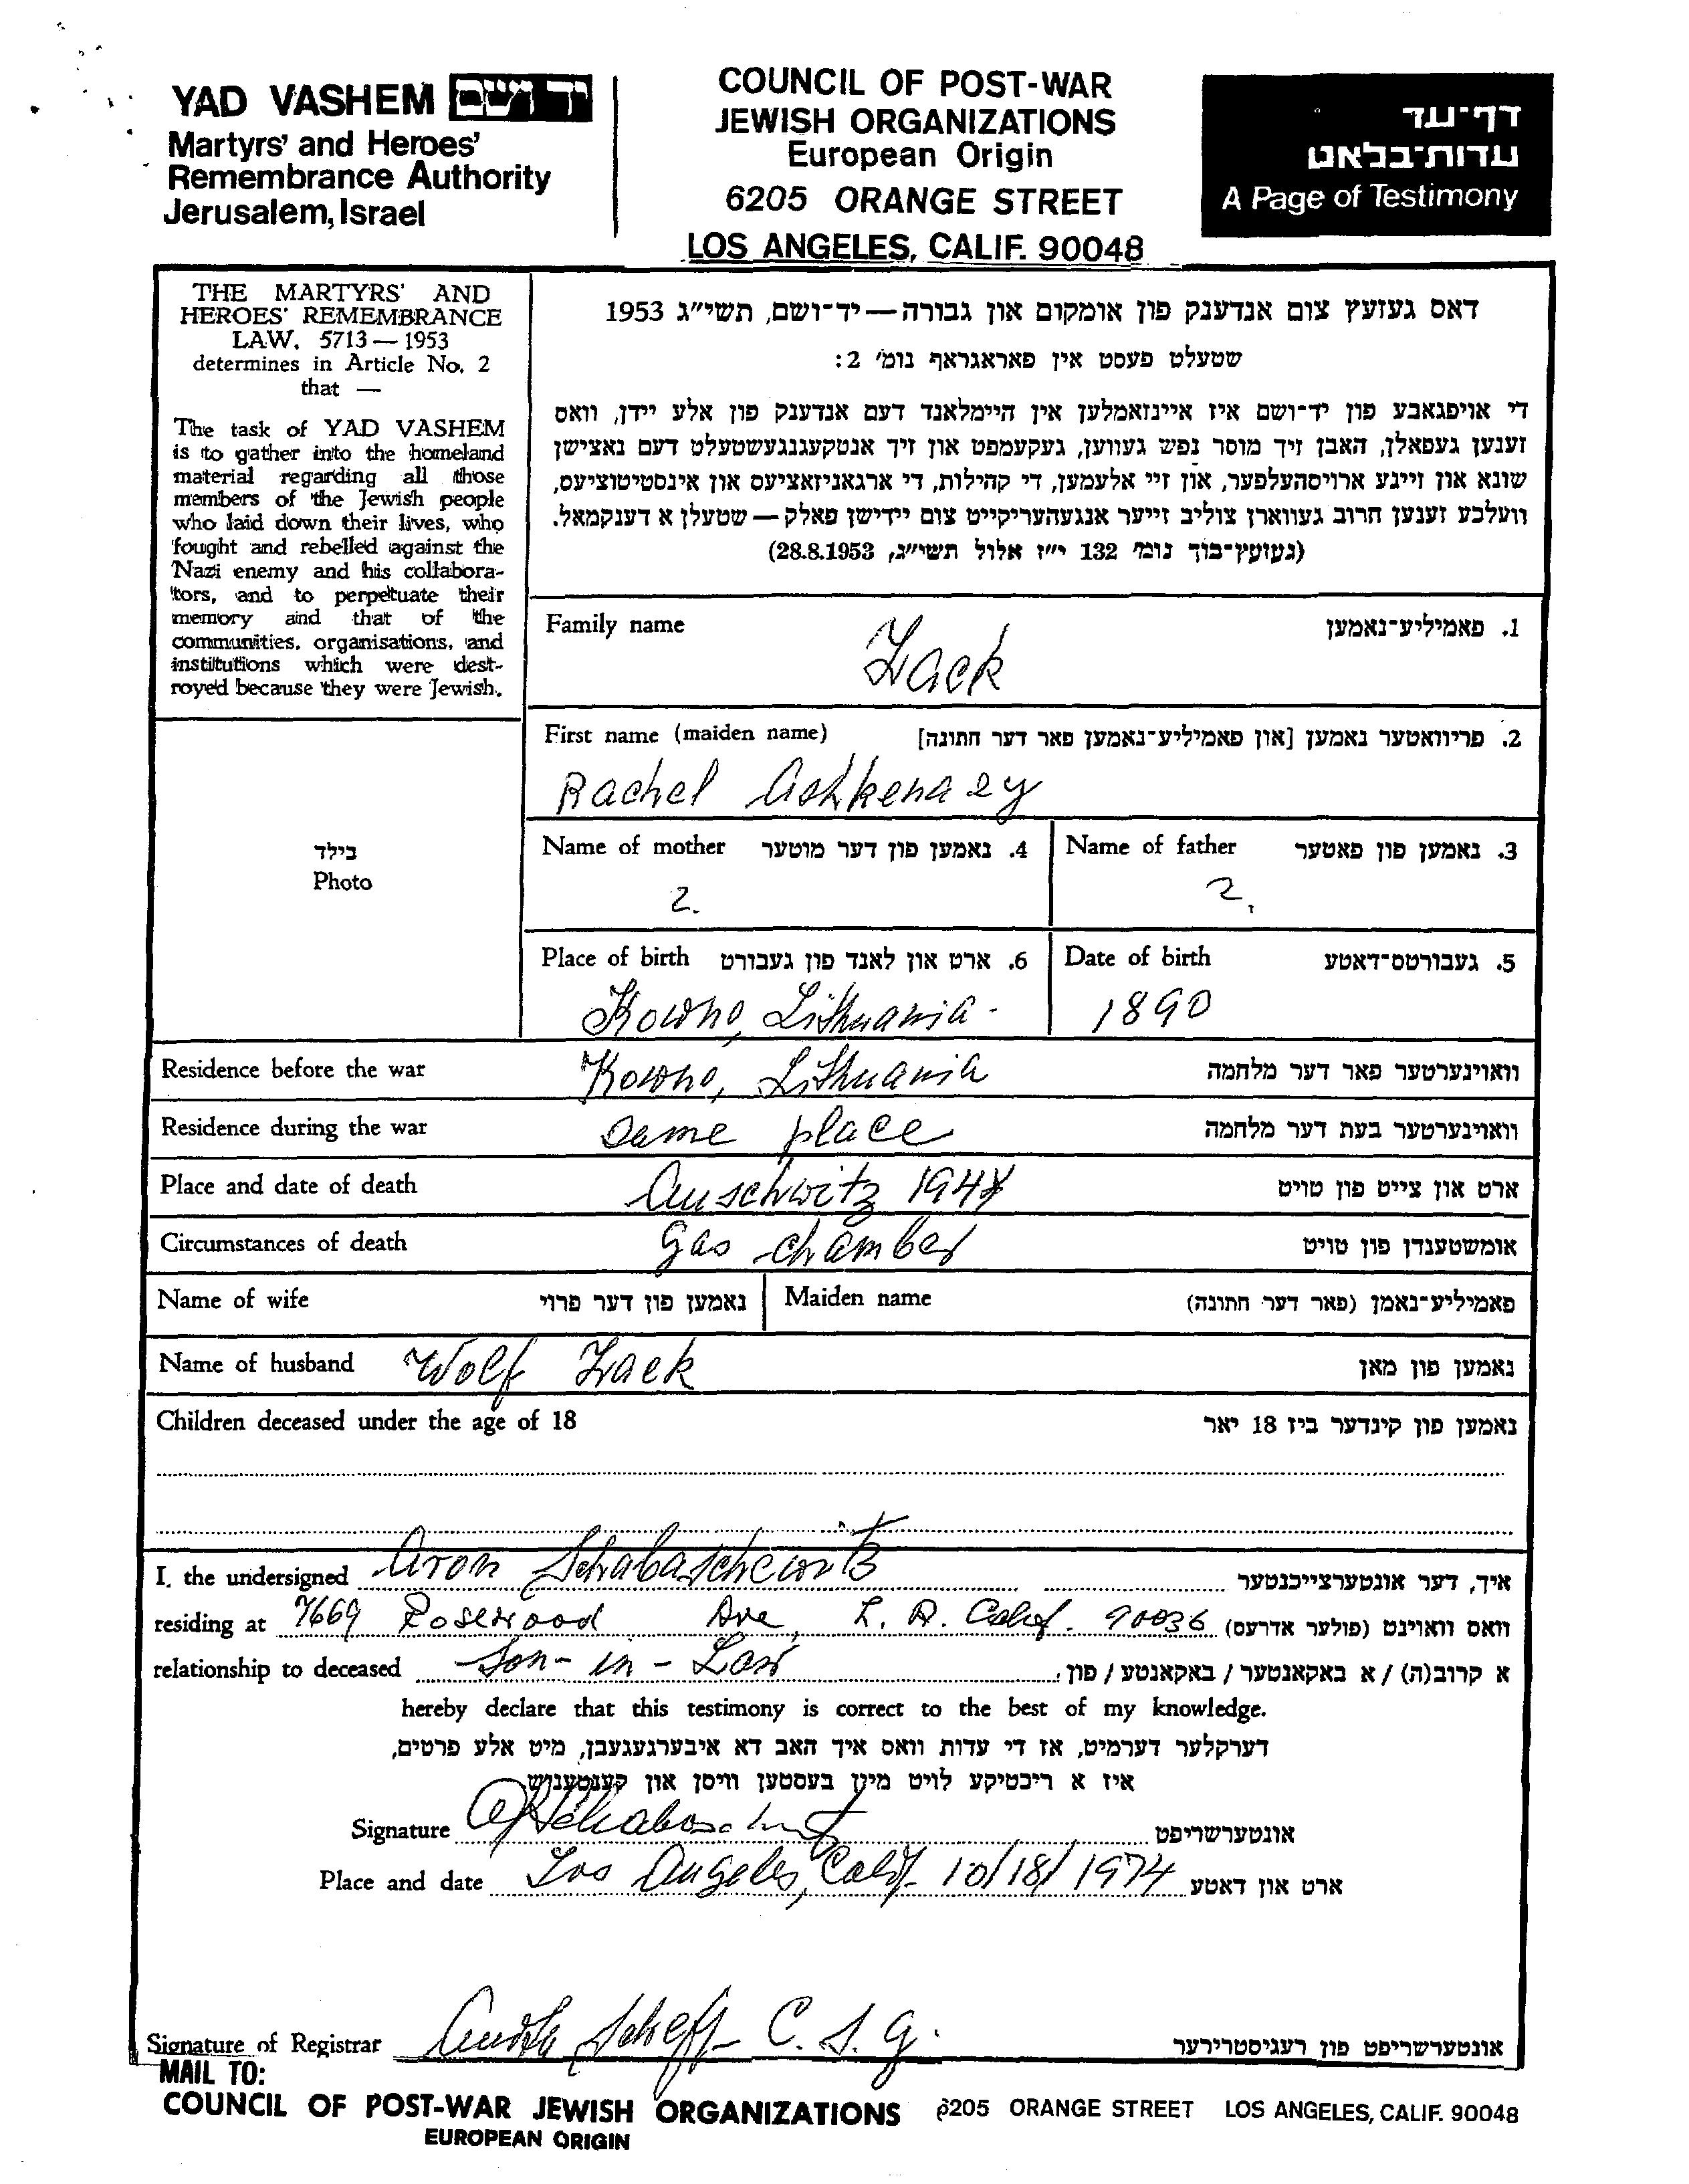 YAD VASHEM יד ושם
Martyrs' and Heroes'
Remembrance Authority
Jerusalem, Israel
COUNCIL OF POST-WAR
JEWISH ORGANIZATIONS
European Origin
6205 ORANGE STREET
LOS ANGELES, CALIF. 90048
דף־עד
עדות־בלאט
A Page of Testimony
THE MARTYRS' AND
HEROES' REMEMBRANCE
LAW, 5713—1953
determines in Article No. 2
that —
The task of YAD VASHEM
is to gather into the homeland
material regarding all those
members of the Jewish people
who laid down their lives, who
fought and rebelled against the
Nazi enemy and his collabora-
tors, and to perpetuate their
memory and that of the
communities, organisations, and
institutions which were dest-
royed because they were Jewish.
דאס געזעץ צום אנדענק פון אומקום און גבורה — יד־ושם, תשי״ג 1953
שטעלט פעסט אין פאראגראף נומ׳ 2:
די אויפגאבע פון יד־ושם איז איינזאמלען אין היימלאנד דעם אנדענק פון אלע יידן, וואס
זענען געפאלן, האבן זיך מוסר נפש געווען, געקעמפט און זיך אנטקעגנגעשטעלט דעם נאצישן
שונא און זיינע ארויסהעלפער, און זיי אלעמען, די קהילות, די ארגאניזאציעס און אינסטיטוציעס,
וועלכע זענען חרוב געווארן צוליב זייער אנגעהעריקייט צום יידישן פאלק — שטעלן א דענקמאל.
(געזעץ־בוך נומ׳ 132 י״ז אלול תשי״ג, 28.8.1953)
בילד
Photo
Family name Zack 1. פאמיליע־נאמען
First name (maiden name) 2. פריוואטער נאמען [און פאמיליע־נאמען פאר דער חתונה]
Rachel Ashkenazy
Name of mother 4. נאמען פון דער מוטער Name of father 3. נאמען פון פאטער
?. ?.
Place of birth 6. ארט און לאנד פון געבורט Date of birth 5. געבורטס־דאטע
Kowno, Lithuania - 1890
Residence before the war Kowno, Lithuania וואוינערטער פאר דער מלחמה
Residence during the war Same place וואוינערטער בעת דער מלחמה
Place and date of death Auschwitz 1944 ארט און צייט פון טויט
Circumstances of death Gas chamber אומשטענדן פון טויט
Name of wife נאמען פון דער פרוי Maiden name פאמיליע־נאמן (פאר דער חתונה)
Name of husband Wolf Zack נאמען פון מאן
Children deceased under the age of 18 נאמען פון קינדער ביז 18 יאר
I, the undersigned Aron Schabaschewitz איך, דער אונטערצייכנטער
residing at 7669 Rosewood Ave, L. A. Calif. 90036 וואס וואוינט (פולער אדרעס)
relationship to deceased Son-in-Law א קרוב(ה) / א באקאנטער / באקאנטע / פון:
hereby declare that this testimony is correct to the best of my knowledge.
דערקלער דערמיט, אז די עדות וואס איך האב דא איבערגעגעבן, מיט אלע פרטים,
איז א ריכטיקע לויט מיין בעסטען וויסן און קענטעניש
Signature אונטערשריפט
Place and date Los Angeles, Calif. 10/18/1974 ארט און דאטע
Signature of Registrar C. S. G. אונטערשריפט פון רעגיסטרירער
MAIL TO:
COUNCIL OF POST-WAR JEWISH ORGANIZATIONS 6205 ORANGE STREET LOS ANGELES, CALIF. 90048
EUROPEAN ORIGIN